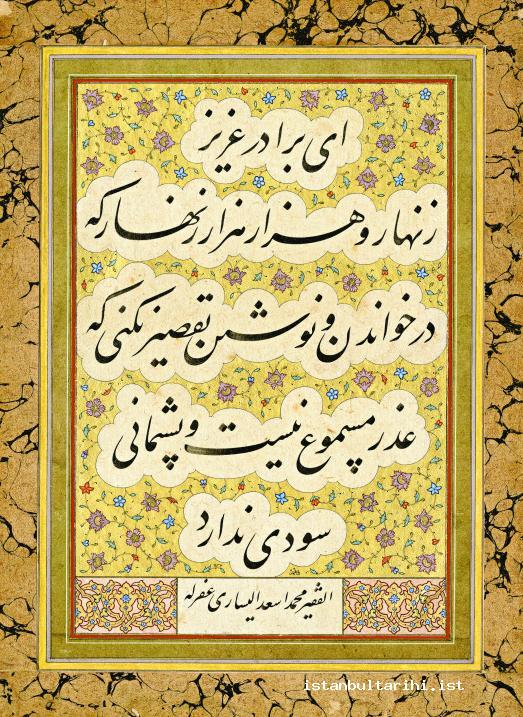 ای برادر عزیز
زنهار و هزار هزار زنهار که
در خواندن و نوشتن تقصیر نکنی که
عذر مسموع نیست و پشیمانی
سودی ندارد
الفقیر محمد اسعد الیساری غفرله
istanbultarihi.ist